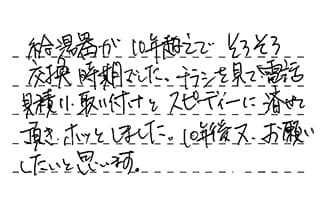 給湯器が10年超えでそろそろ
交換時期でした。チラシを見て電話
見積り、取り付けとスピーディーに済ませて
頂きホッとしました。10年後又、お願い
したいと思います。